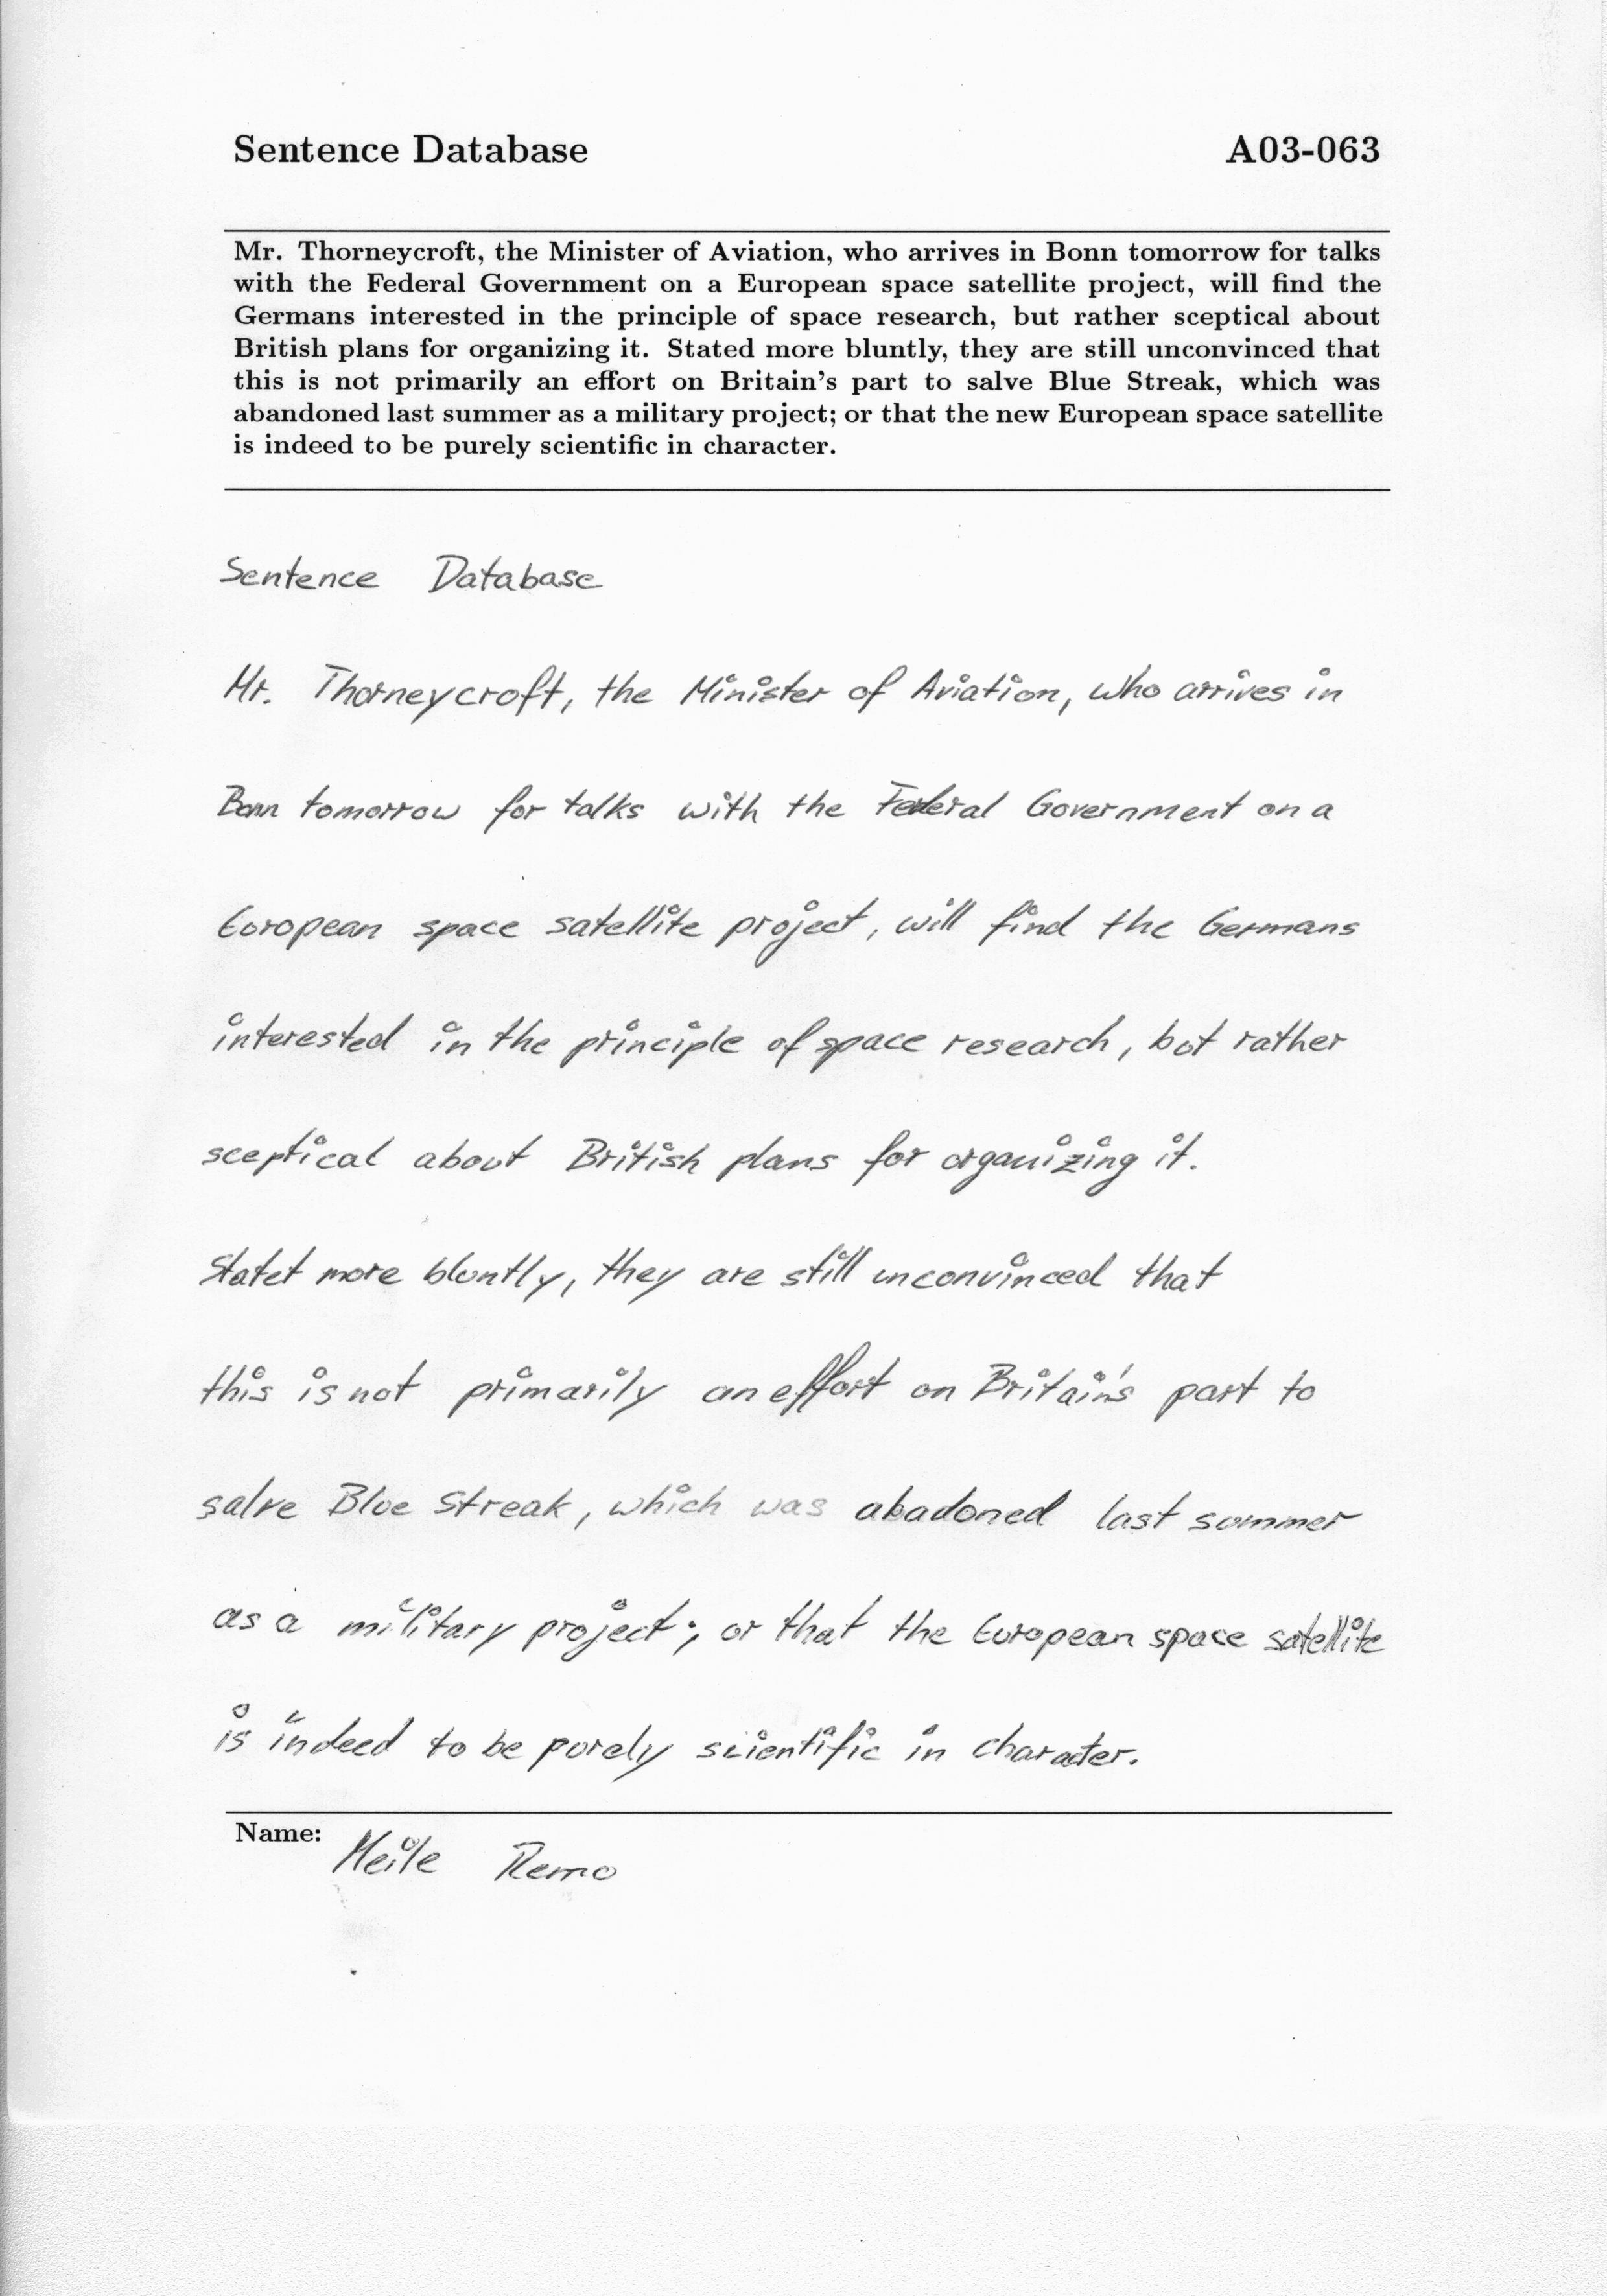 Sentence Database A03-063
Mr. Thorneycroft, the Minister of Aviation, who arrives in Bonn tomorrow for talks
with the Federal Government on a European space satellite project, will find the
Germans interested in the principle of space research, but rather sceptical about
British plans for organizing it. Stated more bluntly, they are still unconvinced that
this is not primarily an effort on Britain's part to salve Blue Streak, which was
abandoned last summer as a military project; or that the new European space satellite
is indeed to be purely scientific in character.
Sentence Database
Mr. Thorneycroft, the Minister of Aviation, who arrives in
Bonn tomorrow for talks with the Federal Government on a
European space satellite project, will find the Germans
interested in the principle of space research, but rather
sceptical about British plans for organizing it.
Statet more bluntly, they are still unconvinced that
this is not primarily an effort on Britain's part to
salve Blue Streak, which was abadoned last summer
as a military project; or that the European space satellite
is indeed to be purely scientific in character.
Name: Meile Remo